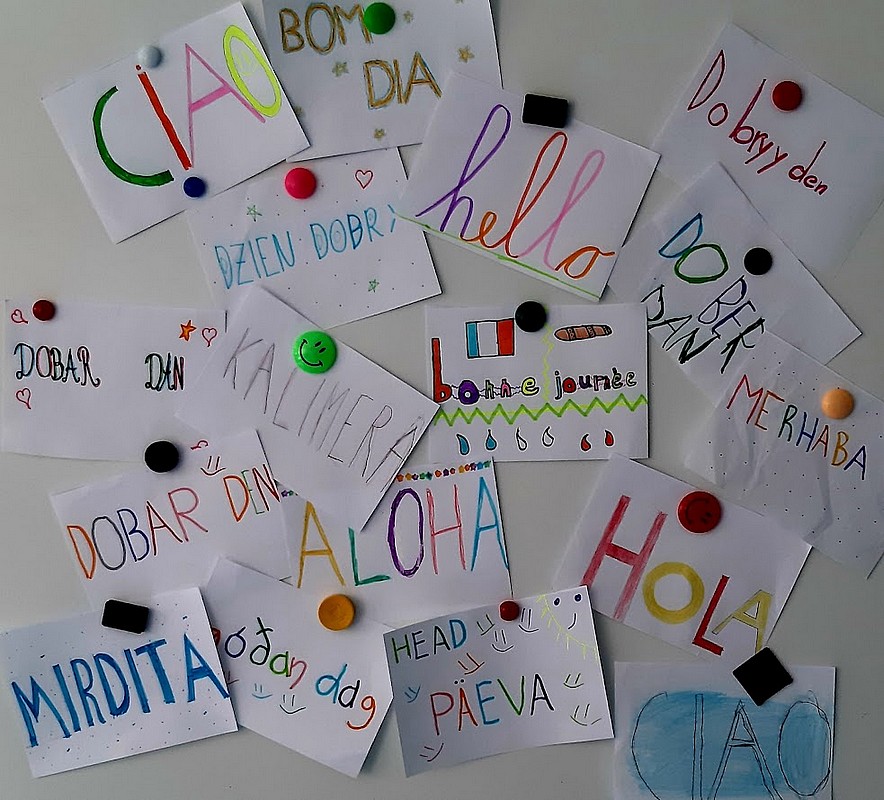 CIAO
BOM
DIA
hello
Dobryy den
DZIEN DOBRY
DOBER
DAN
DOBAR DAN
KALIMERA
bonne journée
MERHABA
DOBAR DEN
ALOHA
HOLA
MIRDITA
Goðan dag
HEAD
PÄEVA
CIAO